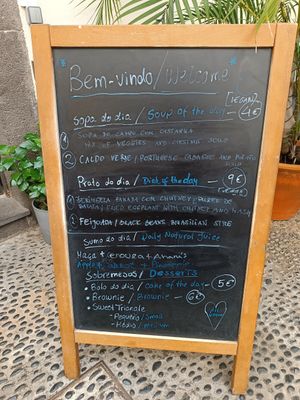 Bem-vindo/Welcome
[VEGAN]
Sopa do dia / Soup of the day - 4€
1 Sopa de Campo com castanha
Mix of veggies and chestnut soup
2 Caldo verde / Portuguese cabbage and potato soup
Prato do dia / Dish of the day - 9€
1 Beringela panada com chutney e puree de
batata / Fried eggplant with chutney and mash
2 Feijoada / Black beans brasilian style
Sumo do dia / Daily Natural Juice
Maçã + Cenoura + Ananás
Apple + Carrot + Pineapple
Sobremesas / Desserts
• Bolo do dia / Cake of the day - 5€
• Brownie / Brownie - 6€
• Sweet Triangle
- Pequeno / Small
- Médio /